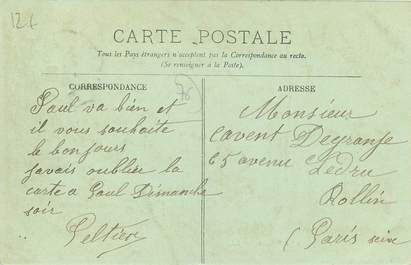 12 f
CARTE POSTALE
Tous les Pays étrangers n'acceptent pas la Correspondance au recto.
(Se renseigner à la Poste).
CORRESPONDANCE
76
Paul va bien et
il vous souhaite
le bonjour
javais oublier la
carte a Paul Dimanche
soir
Peltier
ADRESSE
Monsieur
Cavent Degranse
65 avenue Ledru
Rollin
(Paris seine